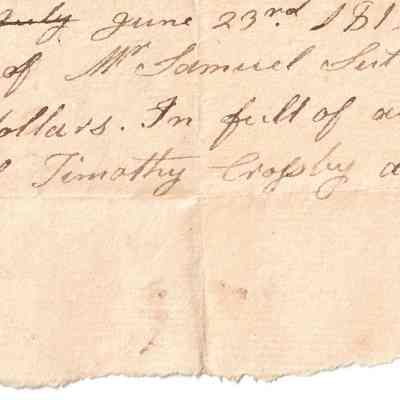 ~~July~~ June 23rd. 181
of Mr Samuel Sut
ollars. In full of a
Timothy Crosby a